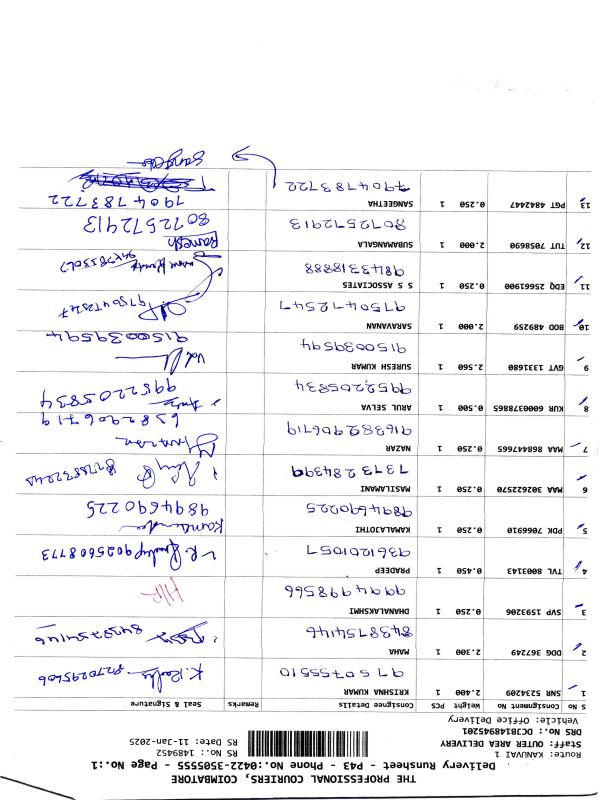 THE PROFESSIONAL COURIERS, COIMBATORE
Delivery Runsheet - P43 - Phone No.:0422-3505555 - Page No.:1
Route: KANUVAI 1
Staff: OUTER AREA DELIVERY
RS No.: 1489452
DRS No.: DC2B1489452O1
RS Date: 11-Jan-2025
Vehicle: Office Delivery
S No Consignment No Weight PCS Consignee Details Remarks Seal & Signature
1 SNR 5234209 2.400 1 KRISHNA KUMAR
9750755510 8270295606
2 DDG 367249 2.300 1 MAHA
8438754146 8438754146
3 SVP 1593206 0.250 1 DHANALAKSHMI
9994998566 H/R
4 TVL 8003143 0.450 1 PRADEEP
9361201057 9025608773
5 PDK 7066910 0.250 1 KAMALAJOTHI
9894690225 9894690225
6 MAA 302622570 0.250 1 MASILAMANI
7373284399
7 MAA 868447665 0.250 1 NAZAR
916382906719 6382906719
8 KUR 600037865 0.500 1 ARUL SELVA
9952205834 9952205834
9 GVT 1331680 2.560 1 SURESH KUMAR
9150039594 9150039594
10 BOD 489259 2.000 1 SARAVANAN
9750472547 9750472547
11 EDQ 25661900 0.250 1 S S ASSOCIATES
9843188888
12 TUT 7058690 2.000 1 SUBAMANGLA
8072572913 Ramesh 8072572913
13 PGT 4842447 0.250 1 SANGEETHA
7904783722 7904783722